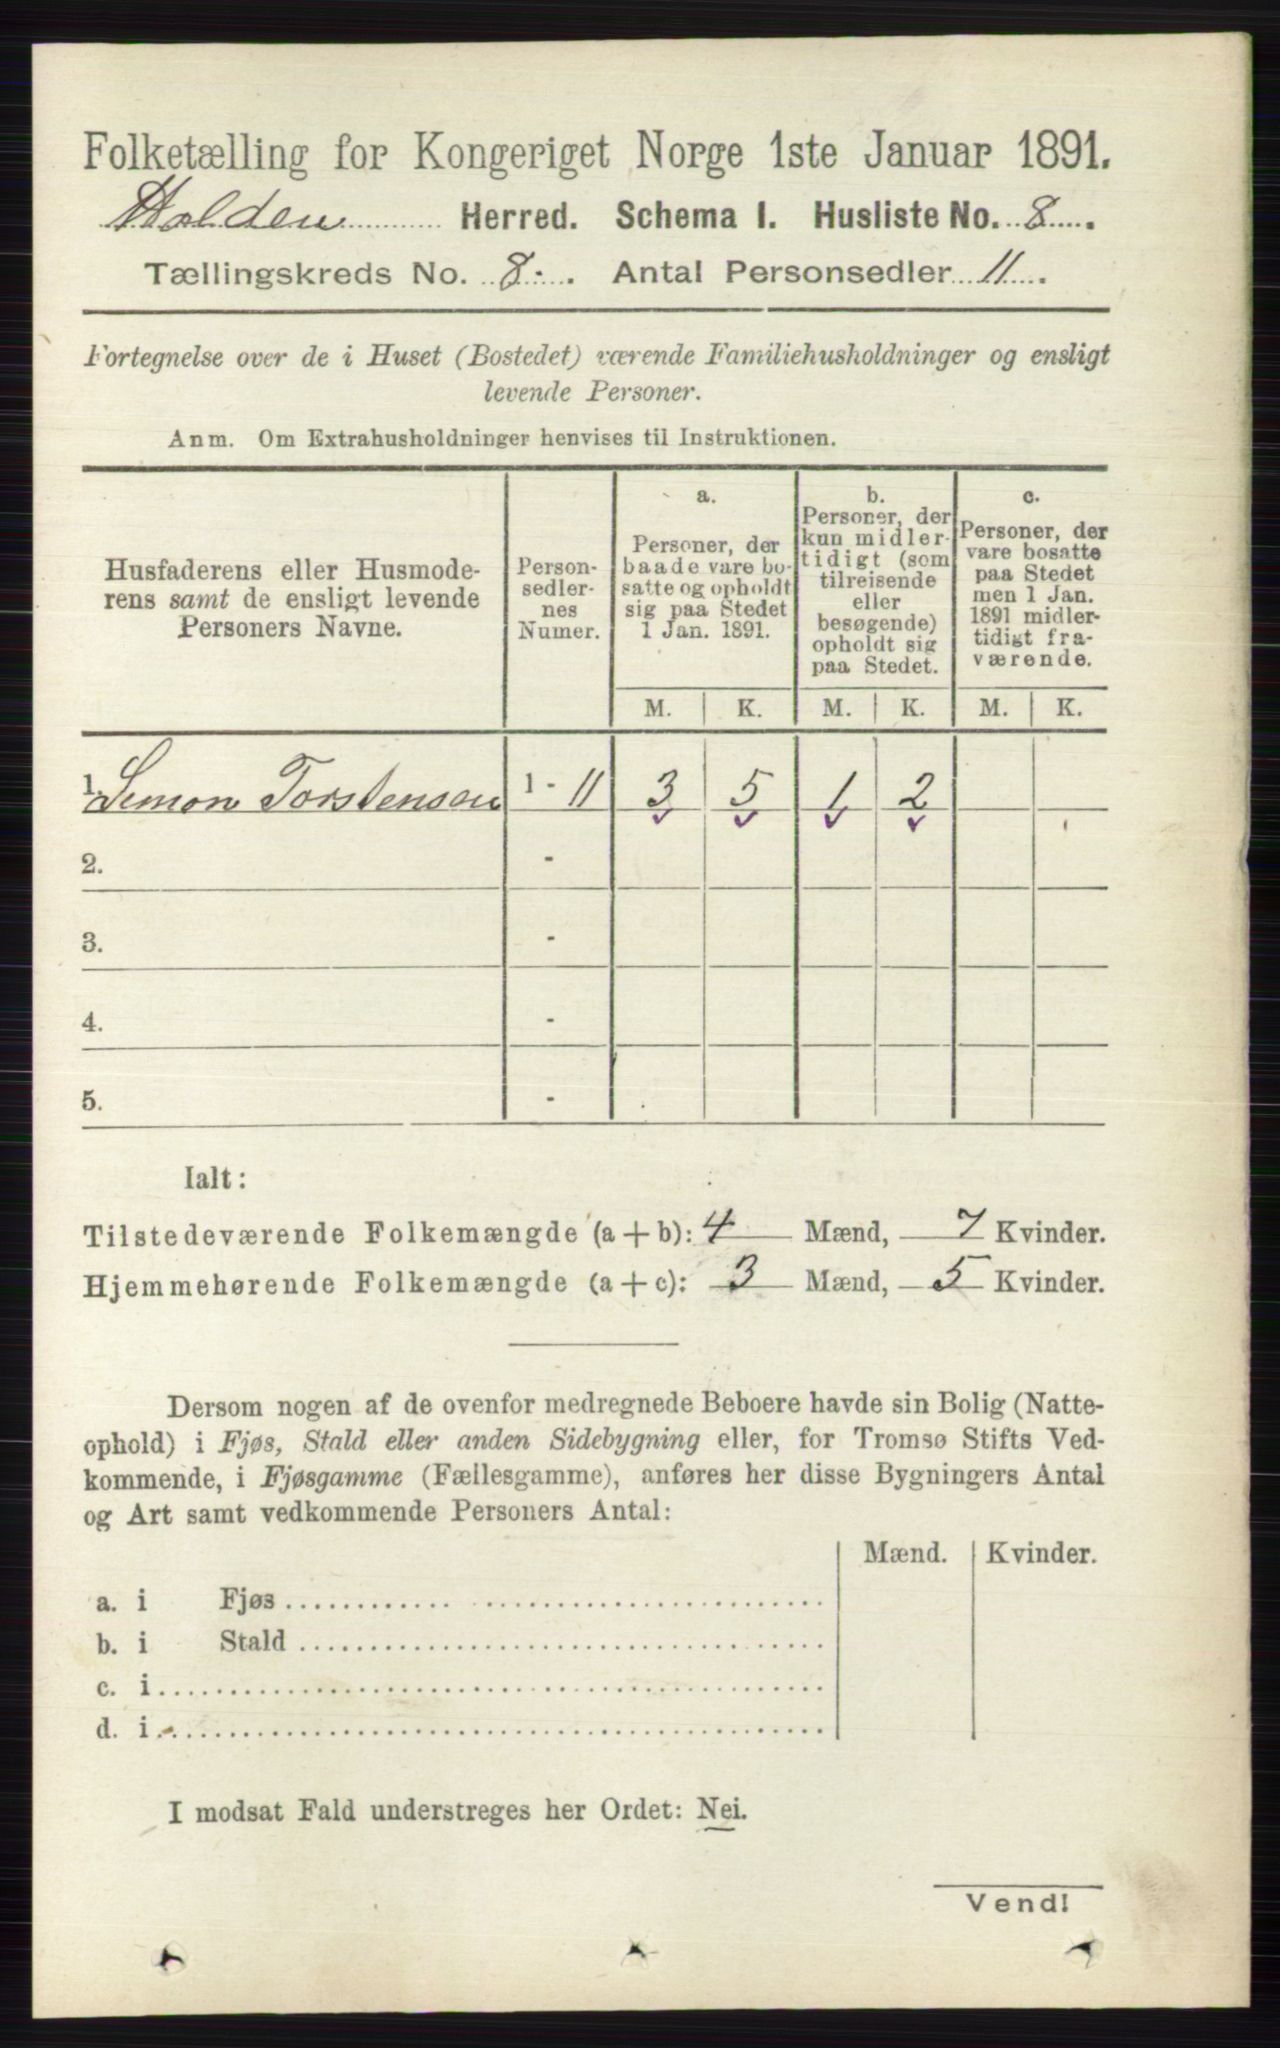 Folketælling for Kongeriget Norge 1ste Januar 1891.
Holden Herred. Schema I. Husliste No. 8.
Tællingskreds No. 8. Antal Personsedler 11.
Fortegnelse over de i Huset (Bostedet) værende Familiehusholdninger og ensligt
levende Personer.
Anm. Om Extrahusholdninger henvises til Instruktionen.
Husfaderens eller Husmode-
rens samt de ensligt levende
Personers Navne.
Person-
sedler-
nes
Numer.
a.
Personer, der
baade vare bo-
satte og opholdt
sig paa Stedet
1 Jan. 1891.
b.
Personer, der
kun midler-
tidigt (som
tilreisende
eller
besøgende)
opholdt sig
paa Stedet.
c.
Personer, der
vare bosatte
paa Stedet
men 1 Jan.
1891 midler-
tidigt fra-
værende.
M. K. M. K. M. K.
1. Simon Torstensen 1 - 11 3 5 1 2
2. -
3. -
4. -
5. -
Ialt:
Tilstedeværende Folkemængde (a + b): 4 Mænd, 7 Kvinder.
Hjemmehørende Folkemængde (a + c): 3 Mænd, 5 Kvinder.
Dersom nogen af de ovenfor medregnede Beboere havde sin Bolig (Natte-
ophold) i Fjøs, Stald eller anden Sidebygning eller, for Tromsø Stifts Ved-
kommende, i Fjøsgamme (Fællesgamme), anføres her disse Bygningers Antal
og Art samt vedkommende Personers Antal:
Mænd. Kvinder.
a. i Fjøs
b. i Stald
c. i
d. i
I modsat Fald understreges her Ordet: Nei.
Vend!